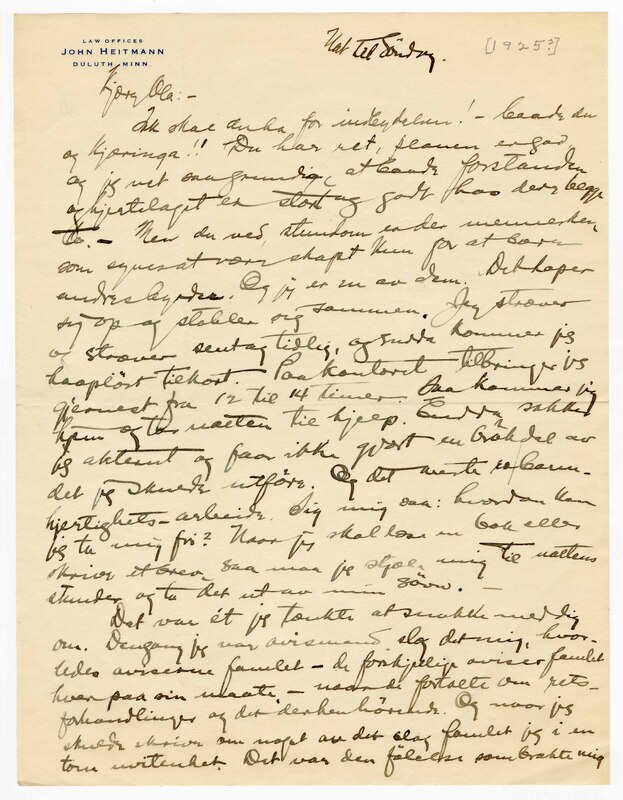 LAW OFFICES
JOHN HEITMANN
DULUTH, MINN.
Nat til Söndag.
[1925?]
Kjære Ola:-
Tak skal du ha for indbydelsen! - baade du
og Kjæringa!! Du har ret, planen er god,
og jeg vet saa grundig, at baade forstanden
og hjertelaget er stort og godt hos dere begge
to. - Men du ved, stundom er der mennesker,
som synes at være skapt kun for at bære
andres byrder. Og jeg er en av dem. Det hoper
sig op og stabler sig sammen. Jeg stræver
og stræver sent og tidlig, og endda kommer jeg
haaplöst tilkort. Paa kontoret tilbringer jeg
gjernest fra 12 til 14 timer. Saa kommer jeg
hjem og tar natten til hjelp. Endda sakker
jeg akterut og faar ikke gjort en brökdel av
det jeg skulde utföre. Og det meste er barm-
hjertighets-arbeide. Sig mig saa: hvordan kan
jeg ta mig fri? Naar jeg skal læse en bok eller
skrive et brev, saa maa jeg stjæle mig til nattens
stunder og ta det ut av min sövn. -
Det var ét jeg tænkte at snakke med dig
om. Dengang jeg var avismand, slog det mig, hvor-
ledes aviserne famlet - de forskjellige aviser famlet
hver paa sin maate - naar de fortalte om rets-
forhandlinger og det derhen hörende. Og naar jeg
skulde skrive om noget av det slag famlet jeg i en
tom uvitenhet. Det var den fölelse som brakte mig